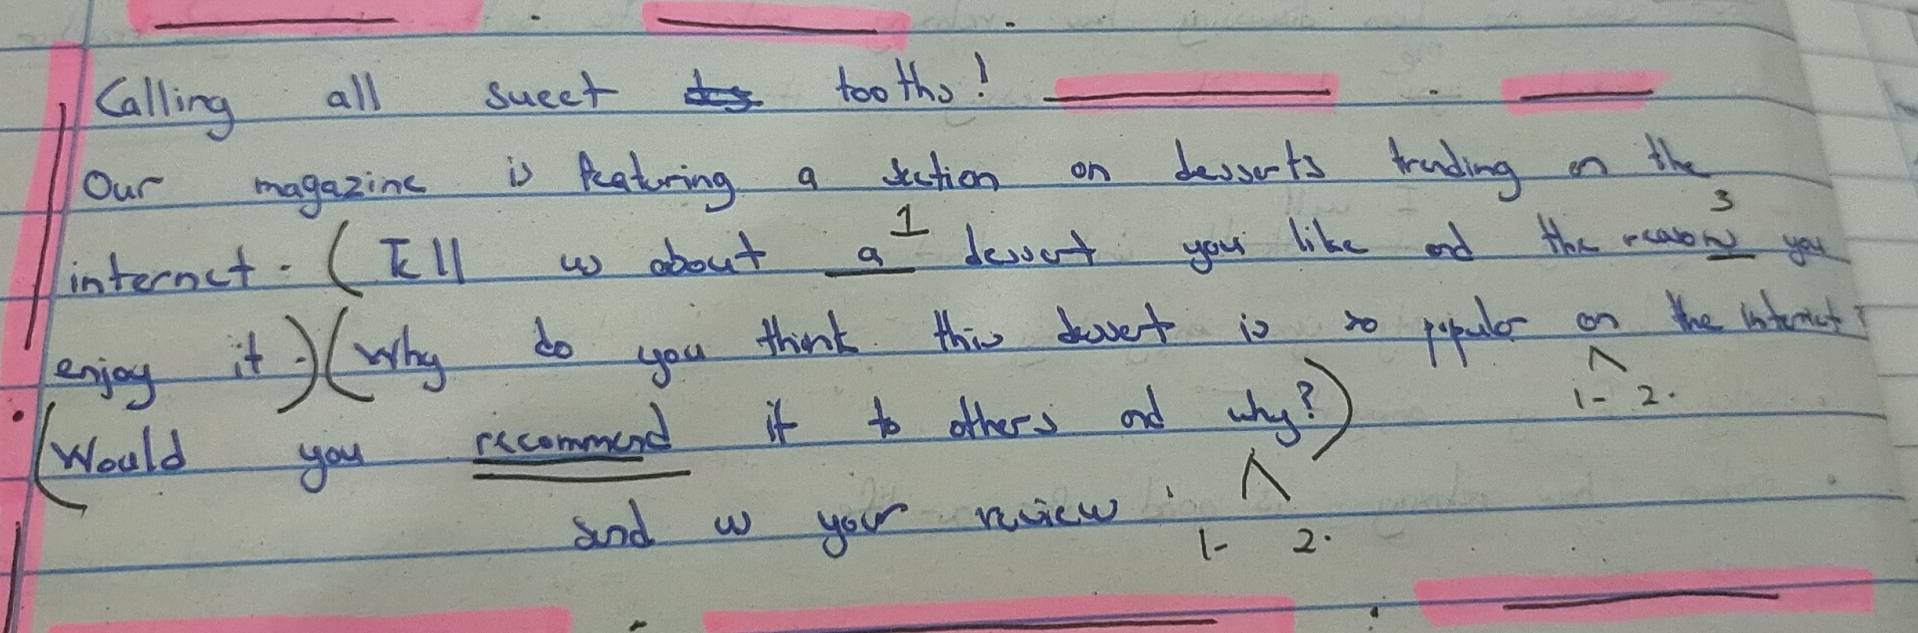 Calling all sweet tooths!
Our magazine is featuring a section on desserts trending on the
internet. (Tell us about a 1 dessert you like and the reasons 3 you
enjoy it.) (Why do you think this dessert is so popular on the internet?
1- 2.
(Would you recommend it to others and why?)
Send us your review. 1- 2.